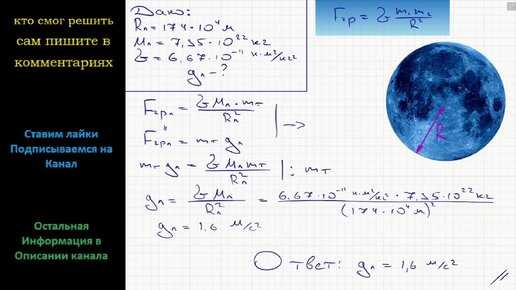 кто смог решить
сам пишите в
комментариях
Ставим лайки
Подписываемся на
Канал
Остальная
Информация в
Описании канала
Дано:
Rл = 174·10⁴ м
Mл = 7,35·10²² кг
G = 6,67·10⁻¹¹ н·м²/кг²
gл – ?
Fгр = G m₁m₂/R²
Fгрл = G Mл·mт/Rл²
Fгрл = mт gл
mт gл = G Mл mт/Rл² | : mт
gл = G Mл/Rл² = 6,67·10⁻¹¹ н·м²/кг² · 7,35·10²² кг/(174·10⁴ м)²
gл = 1,6 м/с²
Ответ: gл = 1,6 м/с²
R